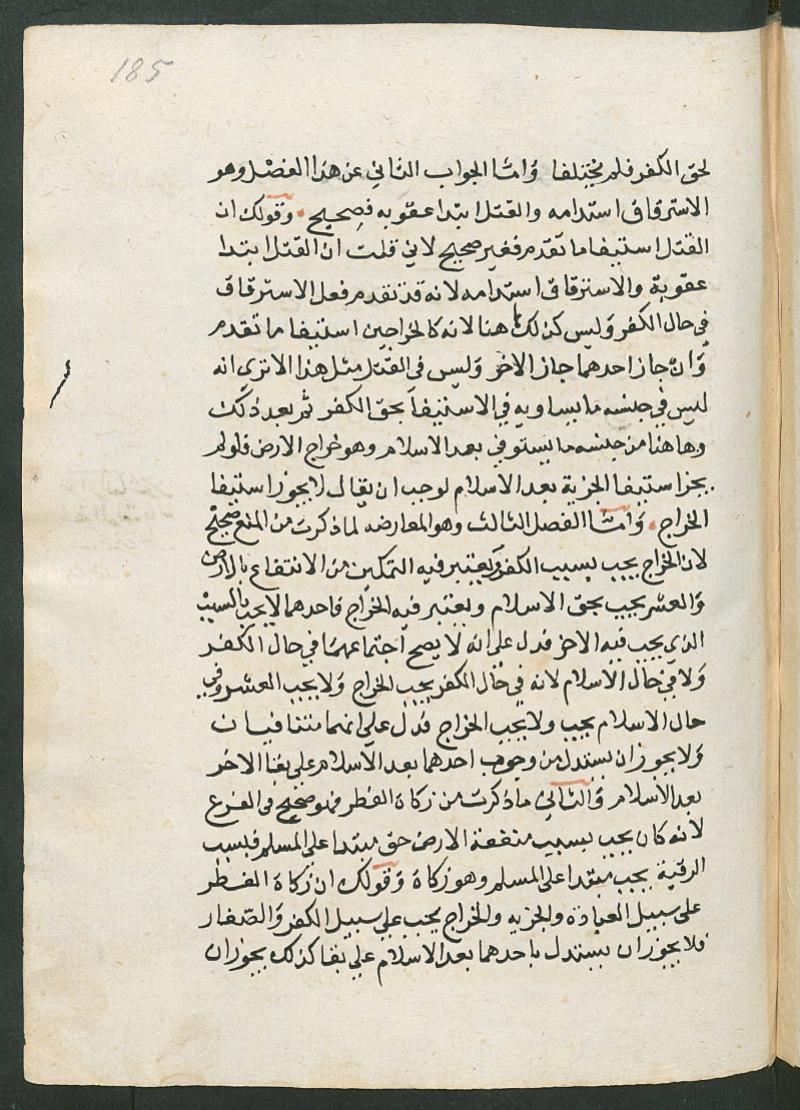 185
لحق الكفر فلم يختلفا وَامّا الجواب الثاني عن هذا الفصْل وهو
الاسترقاق استدامه والقتل ابتدا عقوبه فصحيح وقولك ان
القتل استيفا ما تقدم فغير صحيح لاني قلت ان القتل ابتدا
عقوبة والاسترقاق استدامه لانه قد تقدم فعل الاسترقاق
في حال الكفر وليس كذلك هنا لانه كالخراجين استيفا ما تقدم
وَان جاز احدهما جاز الاخر وَليس في القتل مثل هذا الا ترى انه
ليس في جنسه ما يساويه في الاستيفاَ بحق الكفر ثم بعد ذلك
وهاهنا من جنسه ما يستوفي بعد الاسلام وهو خراج الارض فلو لم
يجز استيفا الجزية بعد الاسلام لوجب ان يقال لا يجوز استيفا
الخراج وَامّا الفصل الثالث وهو المعارضه لما ذكرت من المنع صحيح
لان الخراج يجب بسبب الكفر ويعتبر فيه التمكين من الانتفاع بالارض
وَالعشر يجب بحق الاسلام ويعتبر فيه الخراج فاحدهما لا يجب بالسبب
الذي يجب فيه الاخر فدل على انه لا يصح اجتماعهما في حال الكفر
وَلا في حال الاسلام لانه في حال الكفر يجب الخراج وَلا يجب العشر وفي
حال الاسلام يجب ولا يجب الخراج فدل على انهما متنافيان
وَلا يجوز ان يستدل من وجوب احدهما بعد الاسلام على بقا الاخر
بعد الاسلام وَالثاني ما ذكرت من زكاة الفطر فهو صحيح في الفرع
لانه كان يجب بسبب منفعة الارض حق مبتدا على المسلم فبسبب
الرقبة يجب مبتدا على المسلم وهو زكاة وَقولك ان زكاة الفطر
على سبيل العبادة والجزيه والخراج يجب على سبيل الكفر وَالصّغار
فلا يجوز ان يستدل باحدهما بعد الاسلام على بقا كذلك يجوز ان